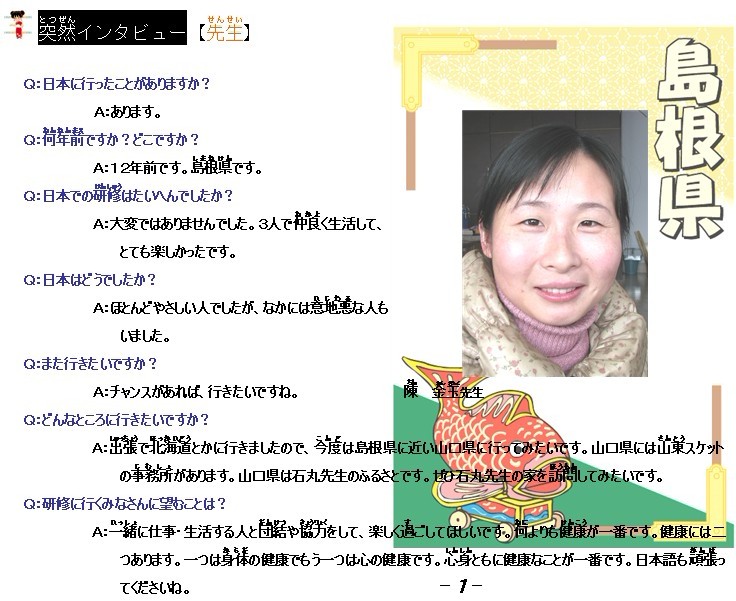 突然インタビュー 【先生】
島根県
Q：日本に行ったことがありますか？
A：あります。
Q：何年前ですか？どこですか？
A：12年前です。島根県です。
Q：日本での研修はたいへんでしたか？
A：大変ではありませんでした。3人で仲良く生活して、
とても楽しかったです。
Q：日本はどうでしたか？
A：ほとんどやさしい人でしたが、なかには意地悪な人も
いました。
Q：また行きたいですか？
A：チャンスがあれば、行きたいですね。
陳 金玉先生
Q：どんなところに行きたいですか？
A：出張で北海道とかに行きましたので、今度は島根県に近い山口県に行ってみたいです。山口県には山東スケット
の事務所があります。山口県は石丸先生のふるさとです。ぜひ石丸先生の家を訪問してみたいです。
Q：研修に行くみなさんに望むことは？
A：一緒に仕事・生活する人と団結や協力をして、楽しく過ごしてほしいです。何よりも健康が一番です。健康には二
つあります。一つは身体の健康でもう一つは心の健康です。心身ともに健康なことが一番です。日本語も頑張っ
てくださいね。
－1－